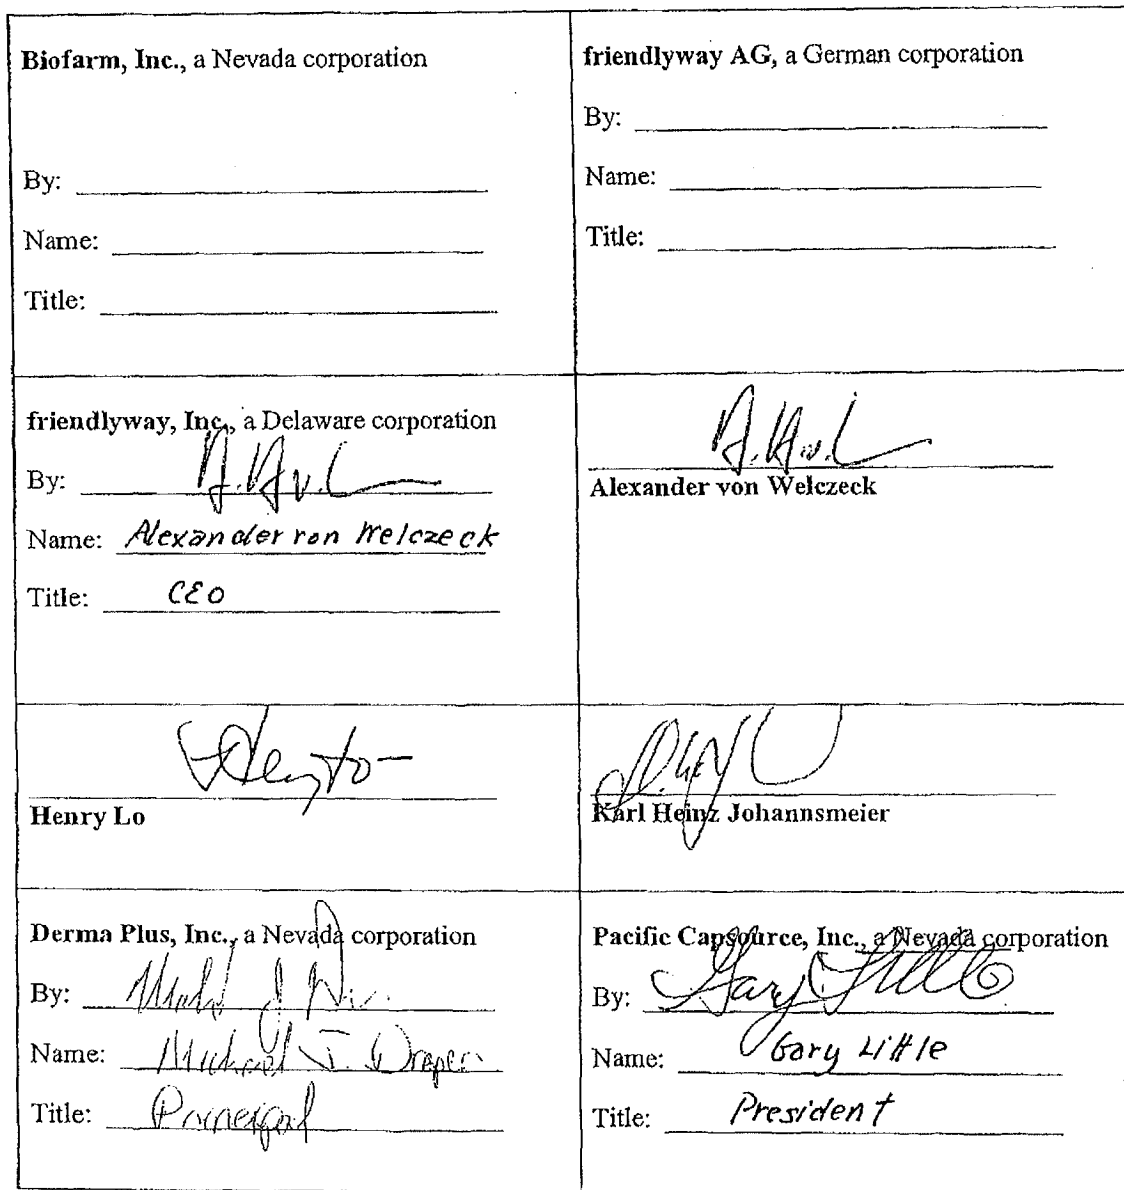 Biofarm, Inc., a Nevada corporation
By:
Name:
Title:
friendlyway AG, a German corporation
By:
Name:
Title:
friendlyway, Inc., a Delaware corporation
By:
Name: Alexander von Welczeck
Title: CEO
Alexander von Welczeck
Henry Lo
Karl Heinz Johannsmeier
Derma Plus, Inc., a Nevada corporation
By:
Name: Michael J. Draper
Title: Principal
Pacific Capsource, Inc., a Nevada corporation
By: Gary Little
Name: Gary Little
Title: President